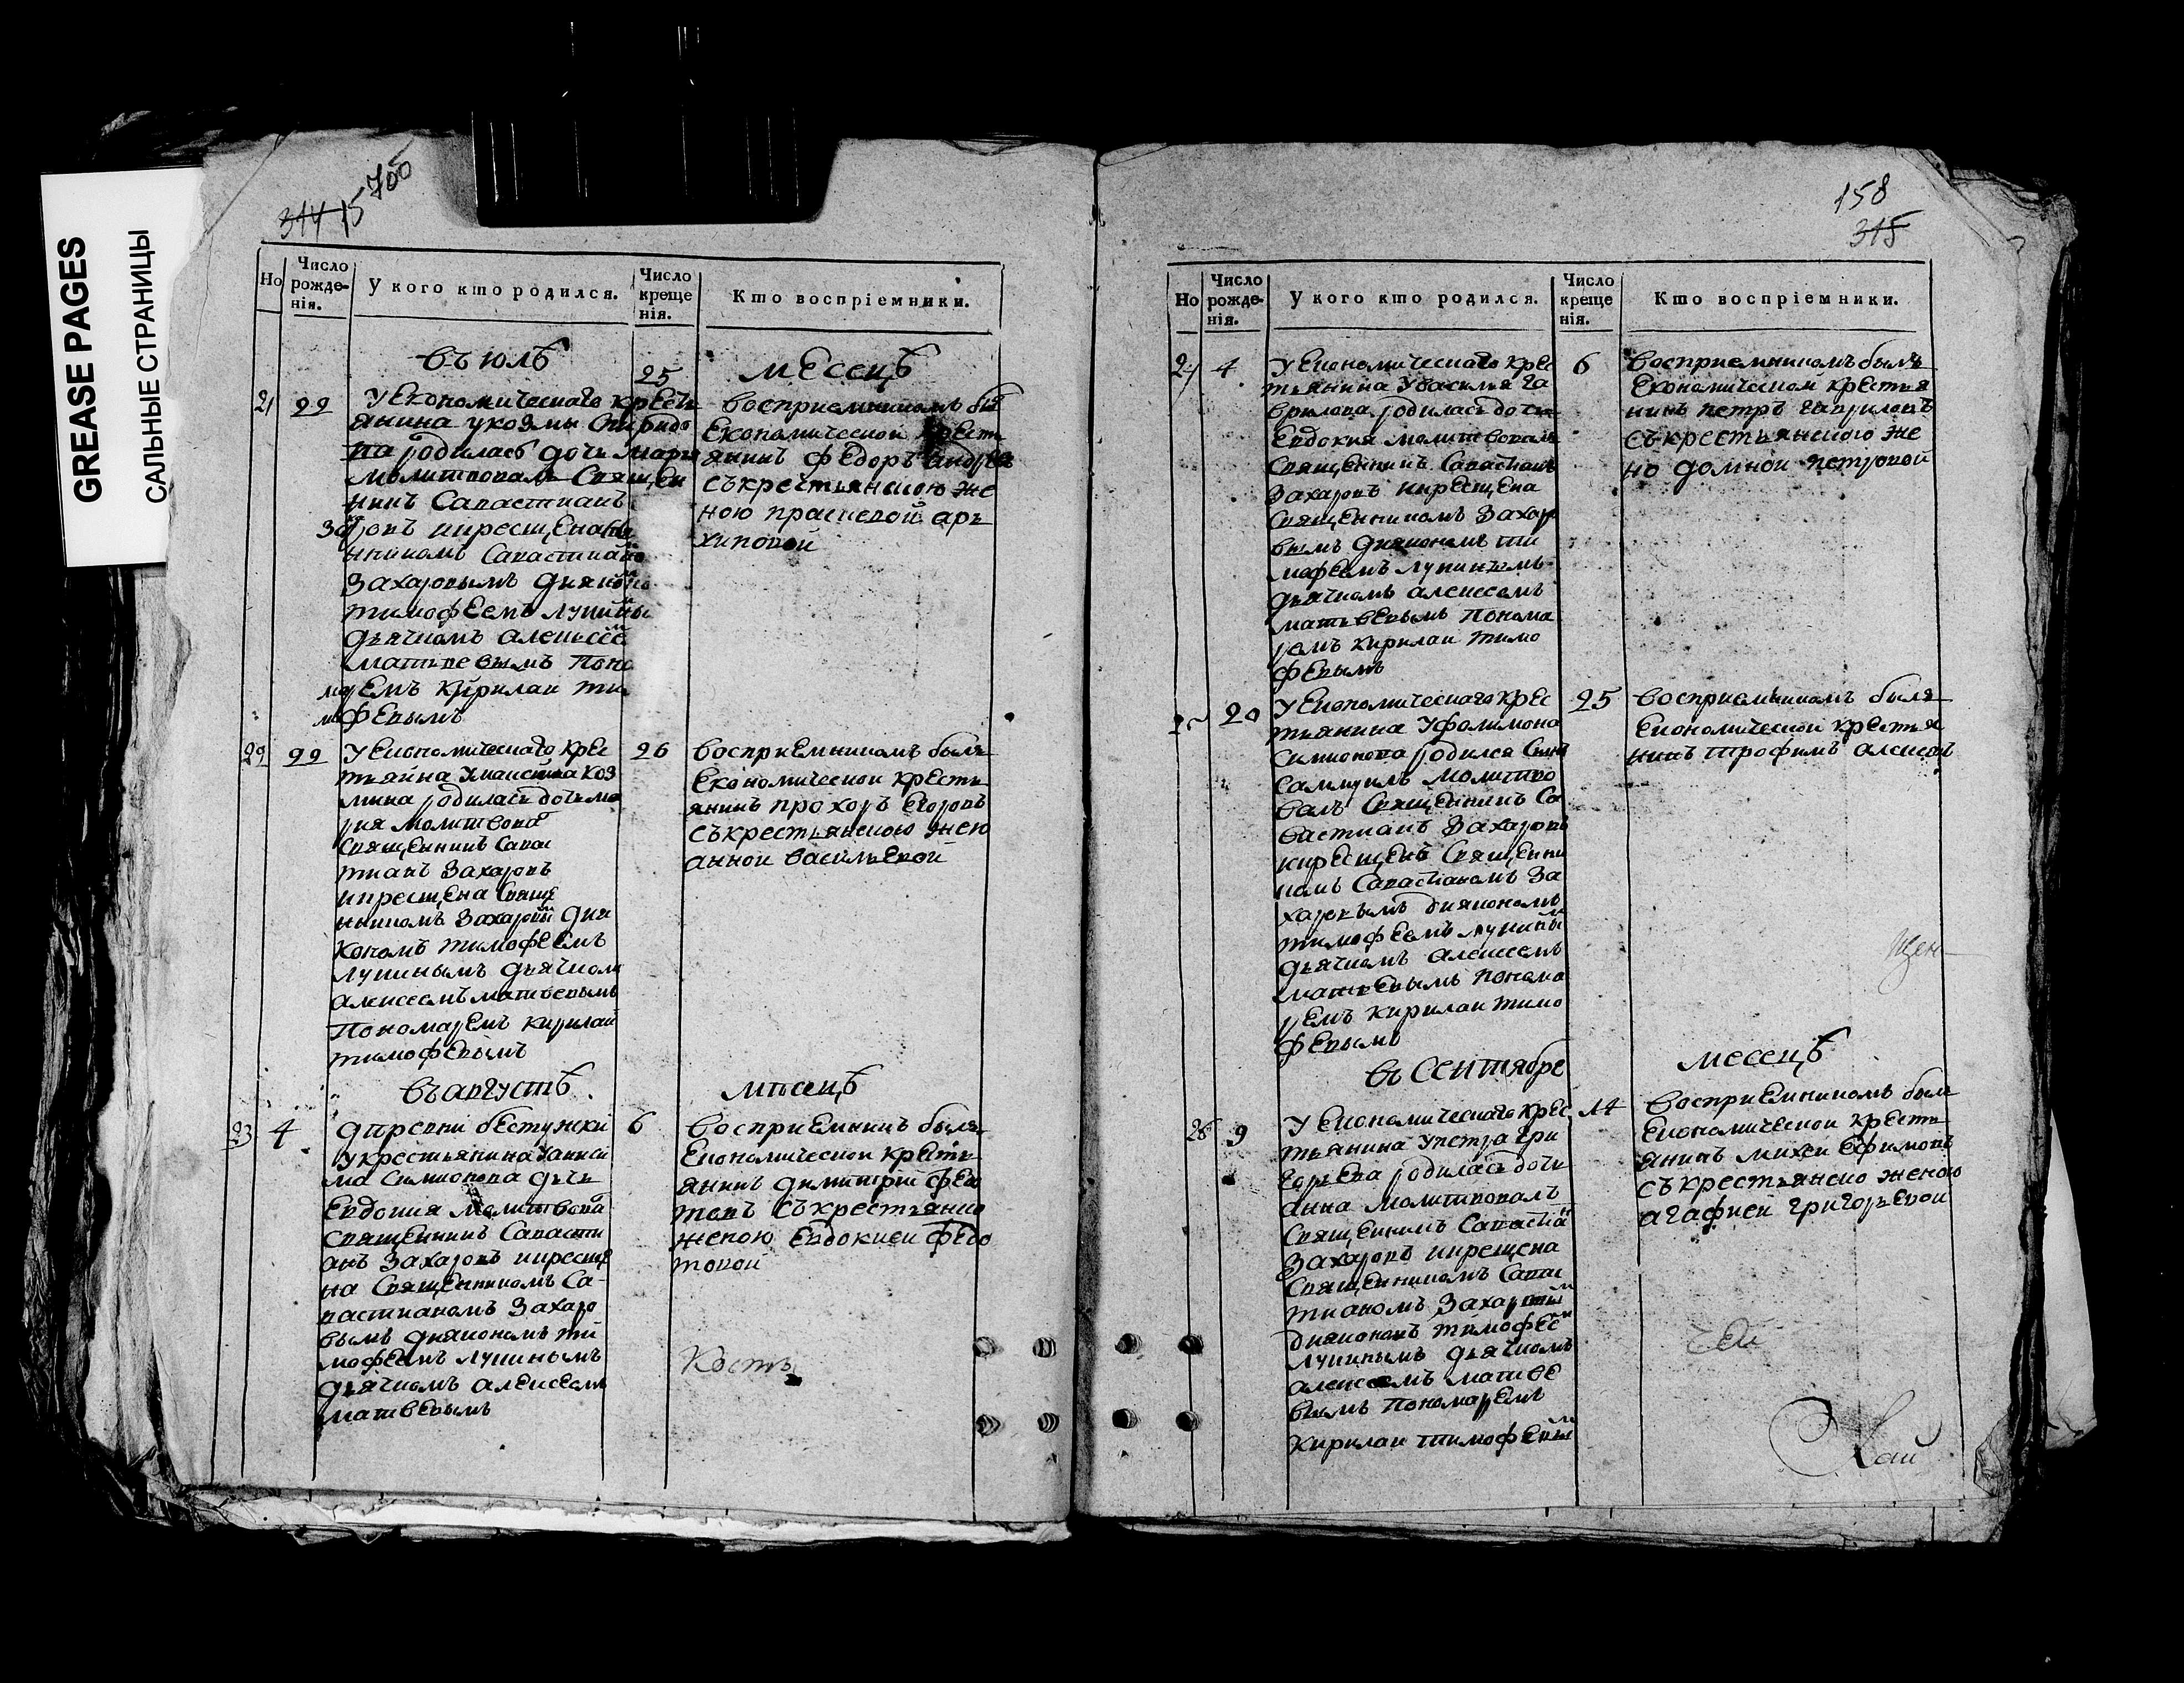 GREASE PAGES
САЛЬНЫЕ СТРАНИЦЫ
314 15
700
Но
Число рожде-нія.
У кого кто родился.
Число креще нія.
Кто воспріемники.
въ юлѣ
месецѣ
21 22
25
У Економическаго кресть
янина укозмы Спиридо
на родилась дочь мария
молитвовалъ Священ
никъ Савастианъ
Захаровъ икрещена Свя
нникомъ Савастиано
Захаровымъ дияконо
тимофеемъ лупины
дьячкомъ алексее
матьвевымъ Поно
маремъ кирилаи ти
мофевымъ
восприемникомъ бы
Економическои кресть
янинъ федоръ андрее
съкрестьянскою же
ною прасковой ар
хиповои
22 22
26
У Економическаго крес
тьянина коз
мина родилась дочь ма
рия молитвова
Священникъ Савас
тианъ Захаровъ
икрещена Свяще
нникомъ Захаровы дия
кономъ тимофеемъ
лупинымъ дьячком
алексеемъ матвевымъ
Пономаремъ кирилаи
тимофевымъ
восприемникомъ былъ
Економическои кресть
янинъ прохоръ Егоровъ
съкрестьянскою жено
анной васильевой
въ августѣ
месецѣ
23 4
6
дтревни бестужки
укрестьянина
ма Симионова дочь
Евдокия Молитвова
священникъ Савасти
анъ Захаровъ икреще
на Священникомъ Са-
вастианомъ Захаро
вымъ диякономъ ти
мофеемъ лупинымъ
дьячкомъ алексеем
матвевымъ
восприемникъ былъ
Економическои кресть
янинъ димитрий фео
товъ съкрестьянко
женою Евдокиеи федо
товой
Кость
158
315
Но
Число рожде-нія.
У кого кто родился.
Число креще нія.
Кто воспріемники.
24 4
6
У Економическаго крес
тьянина Увасилья га
врилова родилась дочь
Евдокия молитвовалъ
Священникъ Савастианъ
Захаровъ икрещена
Священникомъ Захаро
вымъ дияконом ти
мофеемъ лупинымъ
дьячкомъ алексеемъ
матьвевымъ Понома
ремъ кирилаи тимо
февымъ
восприемникомъ былъ
Економическои крестья
нинъ петръ гавриловъ
съкрестьянскою же
но домной петровой
20
25
У Економическаго крес
тьянина Уфолимона
Симионова родился Сынъ
Самуилъ Молитво
валъ Священникъ Са
вастианъ Захаровъ
икрещенъ Священни
комъ Савастианомъ За
харовымъ дияконом
тимофеемъ лупины
дьячкомъ алексеемъ
матьвевымъ Понома
ремъ кирилаи тимо
февымъ
восприемникомъ былъ
Економическои крестья
нинъ трофимъ алексеевъ
въ Сентябре
месецѣ
26 9
14
У Економическаго крес
тьянина упетра гри
горьева родилась дочь
анна молитвовалъ
Священникъ Савастиа
Захаровъ икрещена
Священникомъ Савас
тианомъ Захаровы
дияконом тимофее
лупинымъ дьячкомъ
алексеемъ матьве
вымъ Пономаремъ
кирилаи тимофевы
восприемникомъ былъ
Економическои кресть
янинъ михеи Ефимовъ
съкрестьянско женою
агафиеи григорьевои